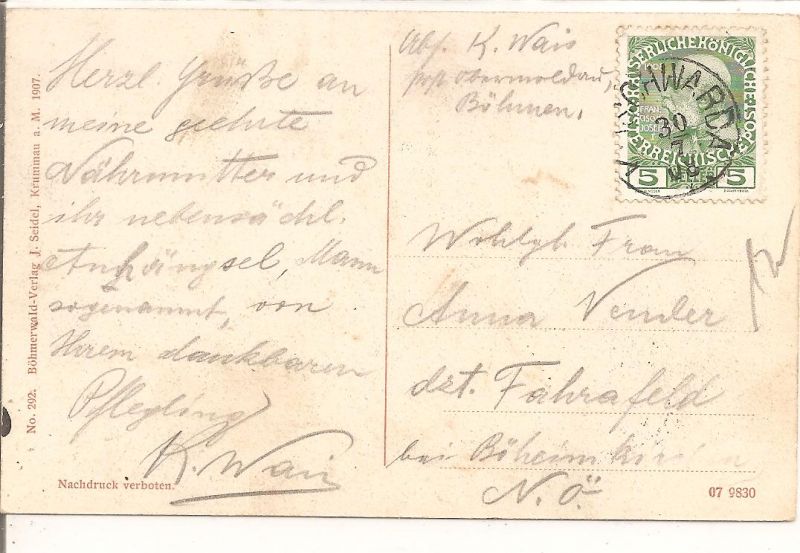 No. 292. Böhmerwald-Verlag J. Seidel, Krummau a. M. 1907.
Herzl. Grüße an
meine geehrte
Nährmutter und
ihr nebensächl.
Anhängsel, Mann
sogenannt, von
Ihrem dankbaren
Pflegling
K. Wais
Nachdruck verboten.
Abs. K. Wais
post Obermoldau,
Böhmen.
KAISERLICHE KÖNIGLICHE
ÖSTERREICHISCHE POST
FRANZ JOSEF
5 HELLER 5
30
7
08
Wohlgb. Frau
Anna Vender
dzt. Fahrafeld
bei Böheimkirchen
N. Ö.
07 9830